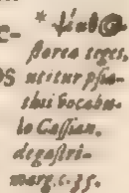 florea seges,
utitur psia-
thii vocabu-
lo Cassian.
de gastri-
marg. c. 35.